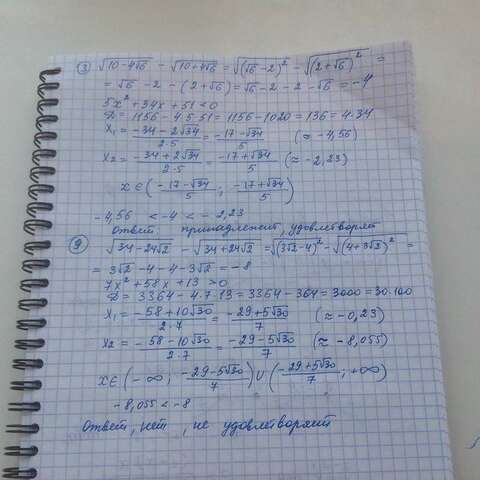 ③ √10-4√6 - √10+4√6 = √(√6-2)² - √(2+√6)² =
= √6 - 2 - (2+√6) = √6 - 2 - 2 - √6 = -4
5x² + 34x + 51 < 0
D = 1156 - 4·5·51 = 1156 - 1020 = 136 = 4·34
x₁ = -34-2√34/2·5 = -17-√34/5 (≈ -4,56)
x₂ = -34+2√34/2·5 = -17+√34/5 (≈ -2,23)
x ∈ (-17-√34/5 ; -17+√34/5)
-4,56 < -4 < -2,23
ответ: принадлежит, удовлетворяет
⑨ √34-24√2 - √34+24√2 = √(3√2-4)² - √(4+3√2)² =
= 3√2 - 4 - 4 - 3√2 = -8
7x² + 58x + 13 > 0
D = 3364 - 4·7·13 = 3364 - 364 = 3000 = 30·100
x₁ = -58+10√30/2·7 = -29+5√30/7 (≈ -0,23)
x₂ = -58-10√30/2·7 = -29-5√30/7 (≈ -8,055)
x ∈ (-∞ ; -29-5√30/7) ∪ (-29+5√30/7 ; +∞)
-8,055 < -8
Ответ, нет, не удовлетворяет